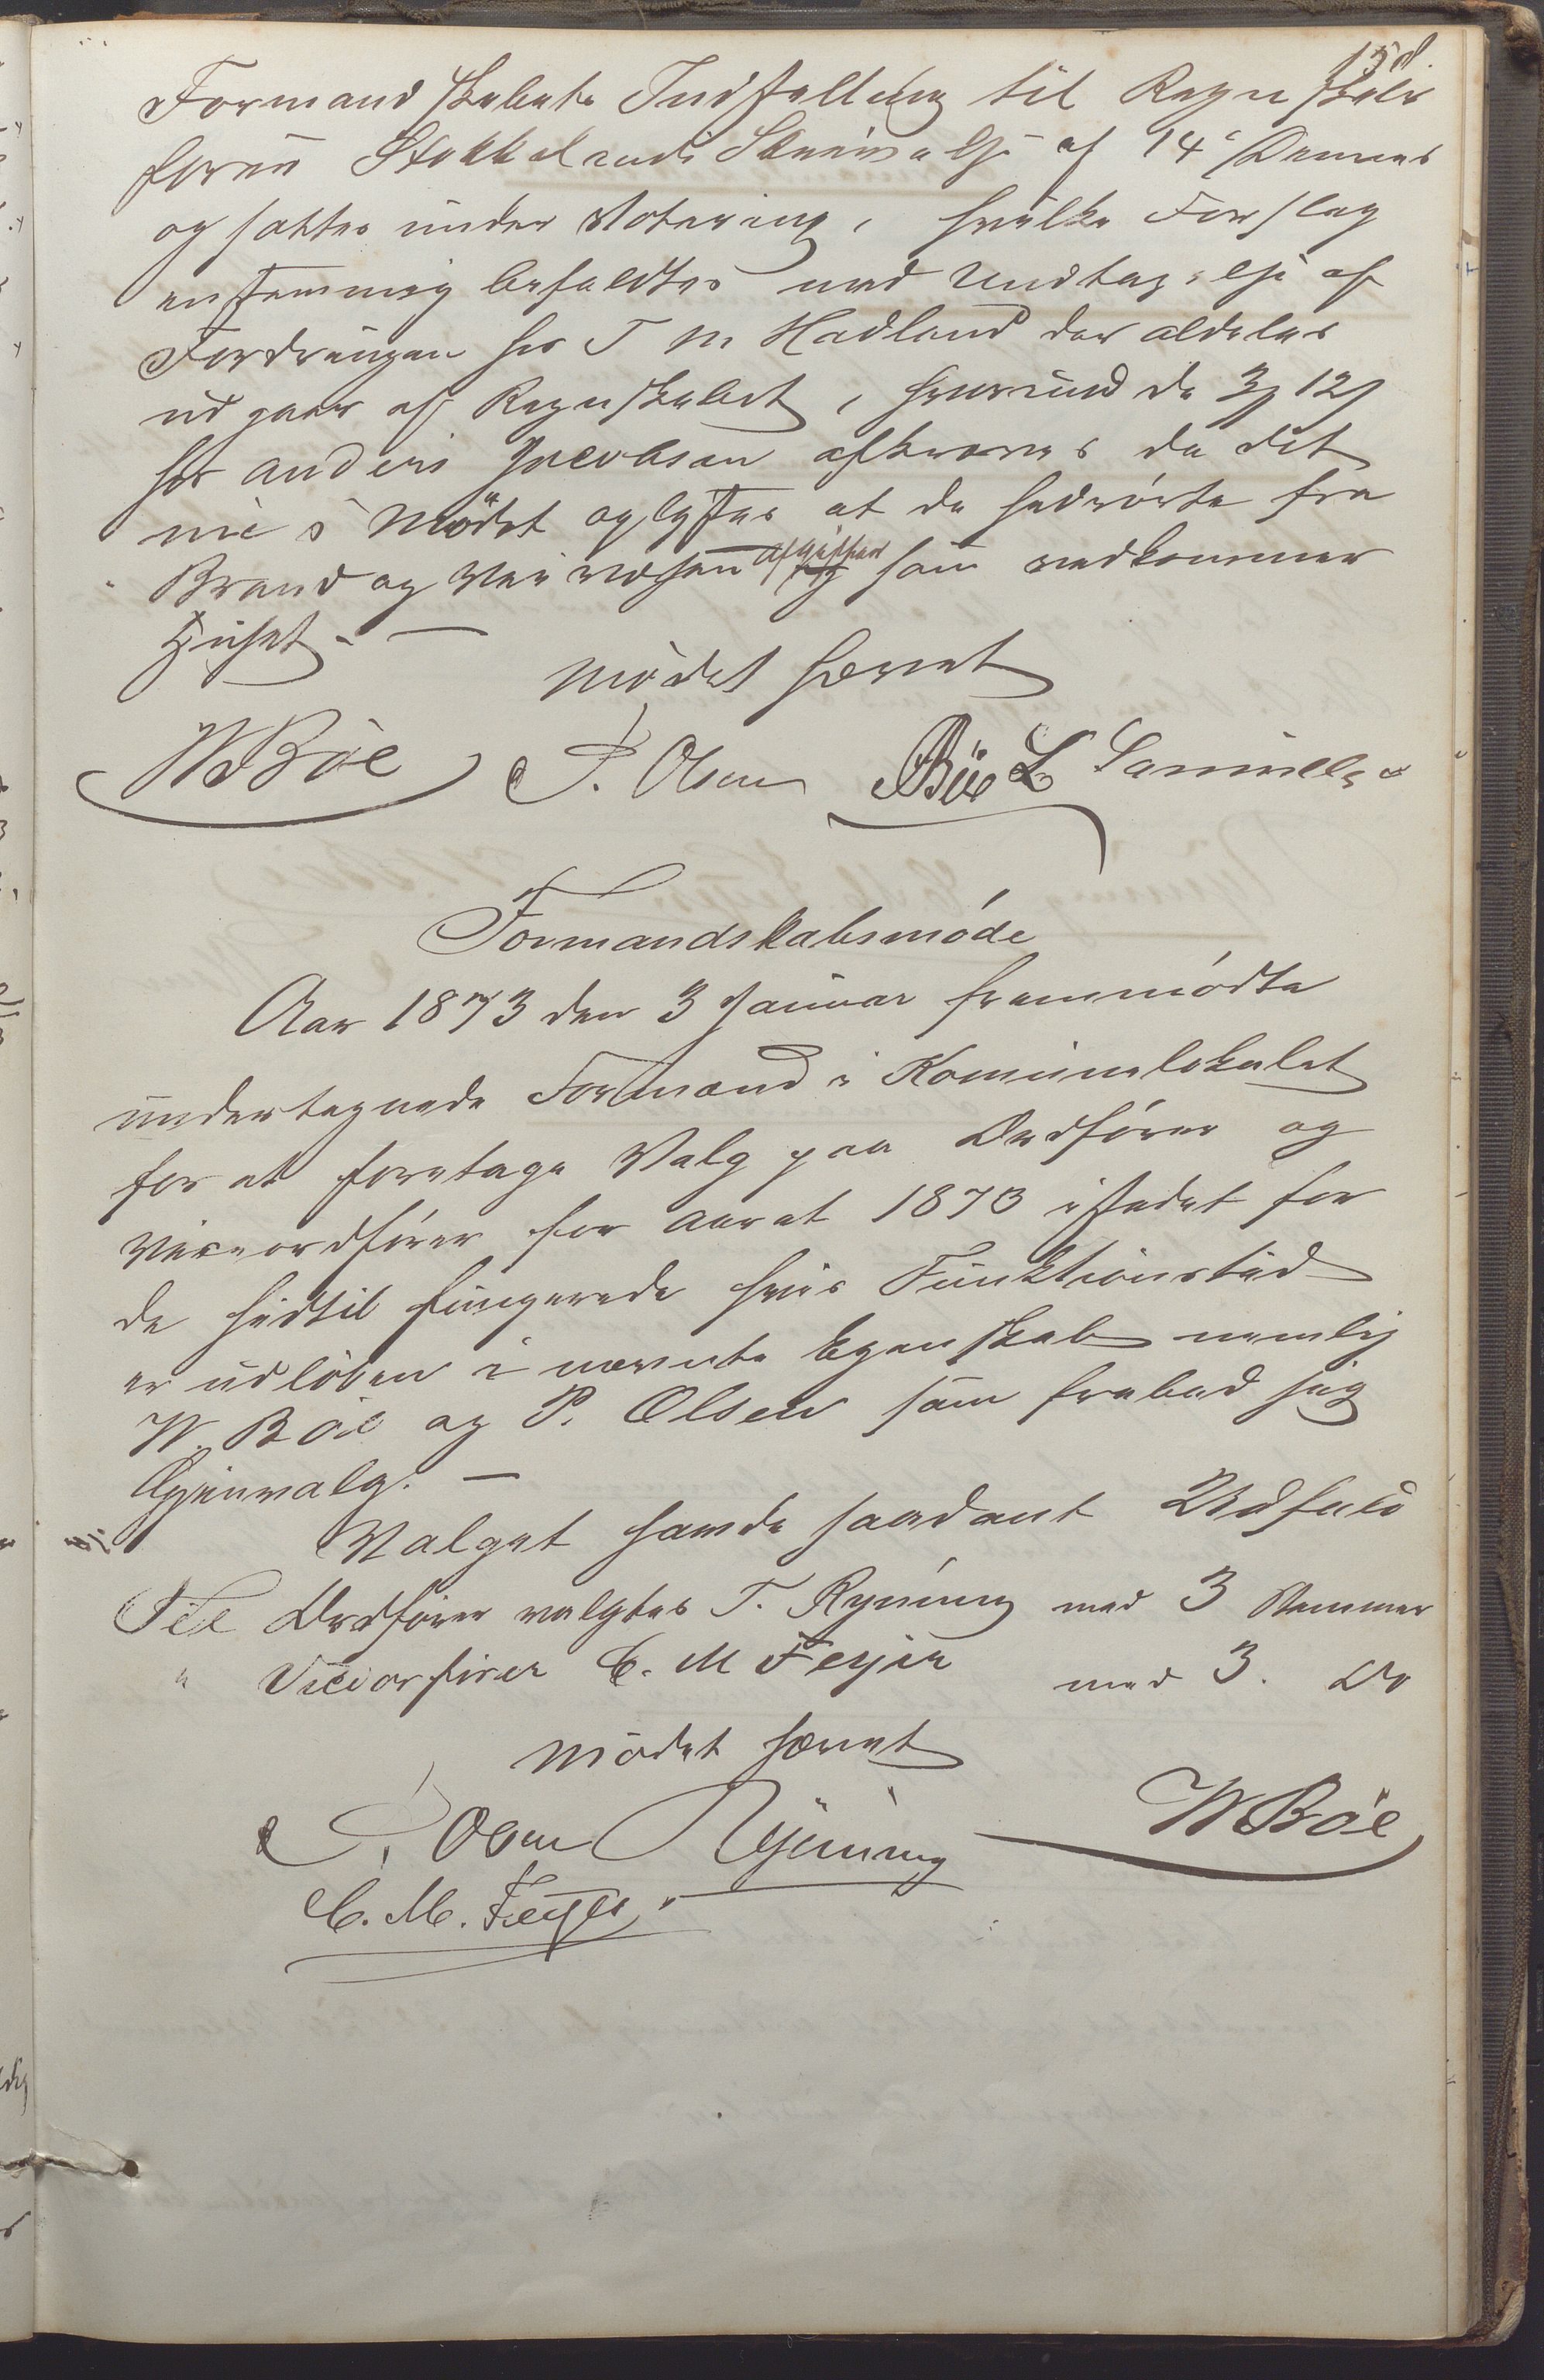 158.
Formandskabets Indstelling til Regnskabs
fører Stokkelands Skrivelse af 14de Dennes
og sattes under Votering, hvilke Forslag
enstemmig befaldtes med Undtagelse af
Fordringen hos T M Hadland der aldeles
udgaar af Regnskabet, hvorimod de 3 12
hos Anders Jacobsen afkræves da det
nu i Mødet oplystes at de hedrørte fra
Brand og Veivæsen afgifter som vedkommer
Huset. —
Mødet hævet
W Böe P. Olsen Böe L Samuels
Formandskabsmøde
Aar 1873 den 3 Januar fremmødte
undertegnede Formænd i Komunelokalet
for at foretage Valg paa Ordfører og
Viceordfører for Aaret 1873 istedet for
de hidtil fungerede hvis Funktionstid
er udløben i nævnte Egenskab nemlig
W Böe og P. Olsen som frabad sig
Gjenvalg. —
Valget havde saadant Udfald
Til Ordfører valgtes T. Ryning med 3 Stemmer
" Viceorfører C. M Feyer med 3. Do
Mødet hævet
P. Olsen Ryning W Böe
C. M. Feyer